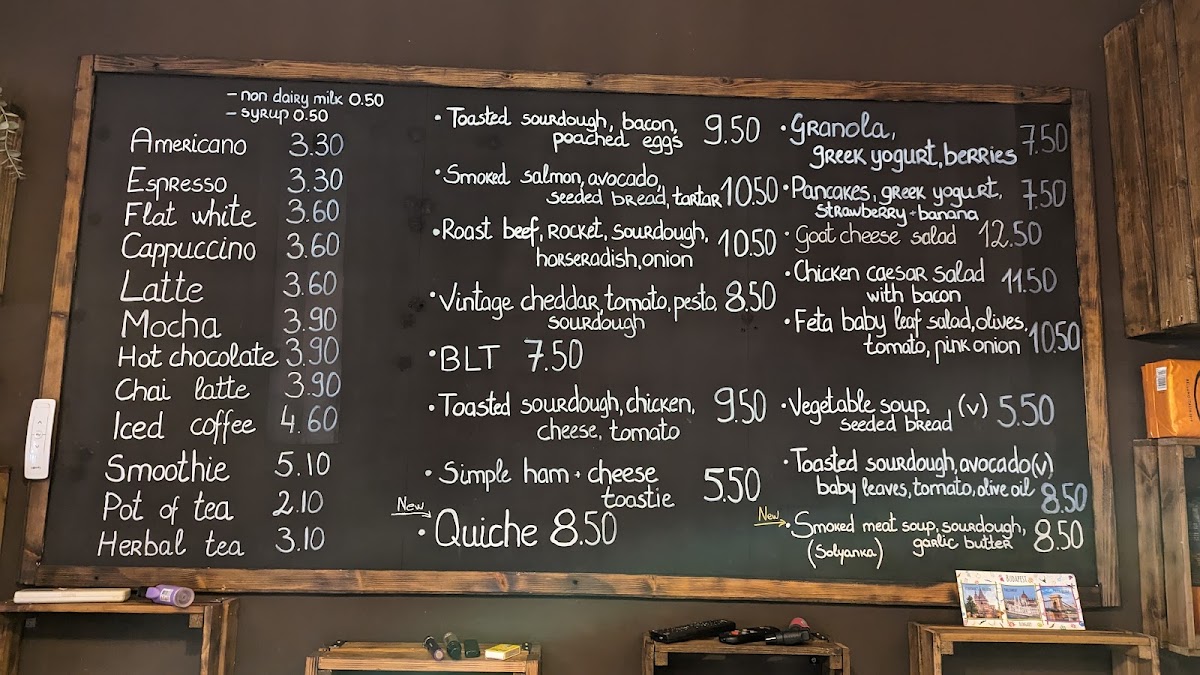 - non dairy milk 0.50
- syrup 0.50
Americano 3.30
Espresso 3.30
Flat white 3.60
Cappuccino 3.60
Latte 3.60
Mocha 3.90
Hot chocolate 3.90
Chai latte 3.90
Iced coffee 4.60
Smoothie 5.10
Pot of tea 2.10
Herbal tea 3.10
• Toasted sourdough, bacon, 9.50
poached eggs
• Smoked salmon, avocado,
seeded bread, tartar 10.50
• Roast beef, rocket, sourdough, 10.50
horseradish, onion
• Vintage cheddar, tomato, pesto, 8.50
sourdough
• BLT 7.50
• Toasted sourdough, chicken, 9.50
cheese, tomato
• Simple ham + cheese 5.50
toastie
New
• Quiche 8.50
• Granola, 7.50
greek yogurt, berries
• Pancakes, greek yogurt, 7.50
strawberry + banana
• Goat cheese salad 12.50
• Chicken caesar salad 11.50
with bacon
• Feta baby leaf salad, olives, 10.50
tomato, pink onion
• Vegetable soup, (v) 5.50
seeded bread
• Toasted sourdough, avocado (v)
baby leaves, tomato, olive oil 8.50
New
• Smoked meat soup, sourdough, 8.50
(Solyanka) garlic butter
BUDAPEST